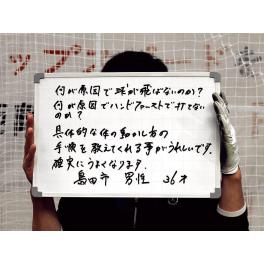 ップ
何が原因で球が飛ばないのか？
何が原因でハンドファーストで打てない
のか？
具体的な体の動かし方の
手順を教えてくれる事がうれしいです。
確実にうまくなります。
島田市 男性 36才